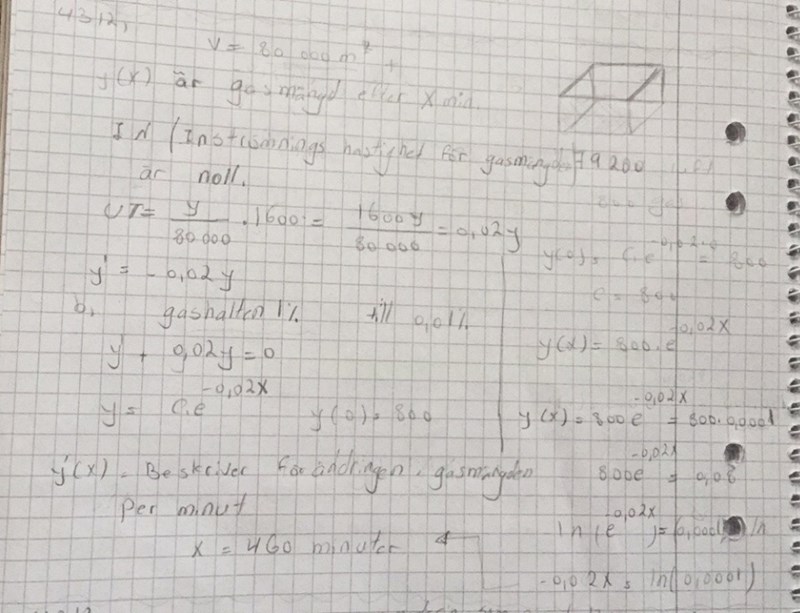 4312,
V = 80 000 m³
y(x) är gasmängd efter x min.
IN (Inströmnings hastighet för gasmängden) 79 200
är noll.
800
UT = y/80 000 · 1600 = 1600y/80 000 = 0,02y
y' = -0,02y
b, gashalten 1% till 0,01%
y' + 0,02y = 0
y = C.e^-0,02x y(0) = 800
y'(x) = Beskriver förändringen i gasmängden
Per minut
x = 460 minuter
y(0) = C.e^-0,02.0 = 800
C = 800
y(x) = 800.e^-0,02x
y(x) = 800e^-0,02x = 800.0,0001
800e^-0,02x = 0,08
ln(e^-0,02x) = (0,0001) ln
-0,02x = ln(0,0001)